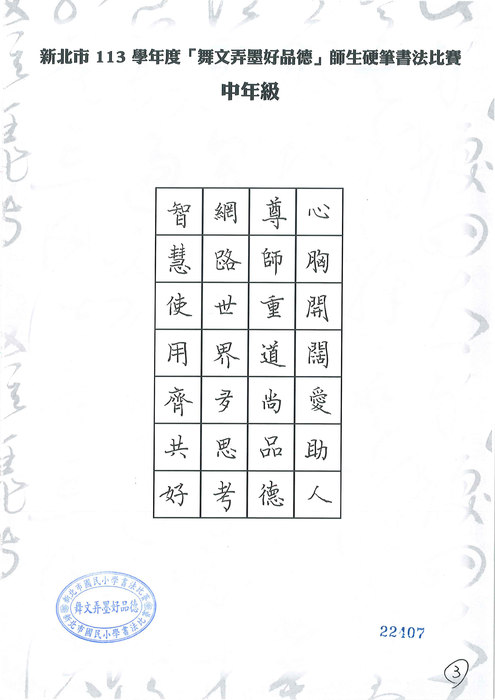 新北市 113 學年度「舞文弄墨好品德」師生硬筆書法比賽
中年級
心胸開闊愛助人
尊師重道尚品德
網路世界多思考
智慧使用齊共好
新北市國民小學書法比賽
舞文弄墨好品德
新北市國民小學書法比
22407
3